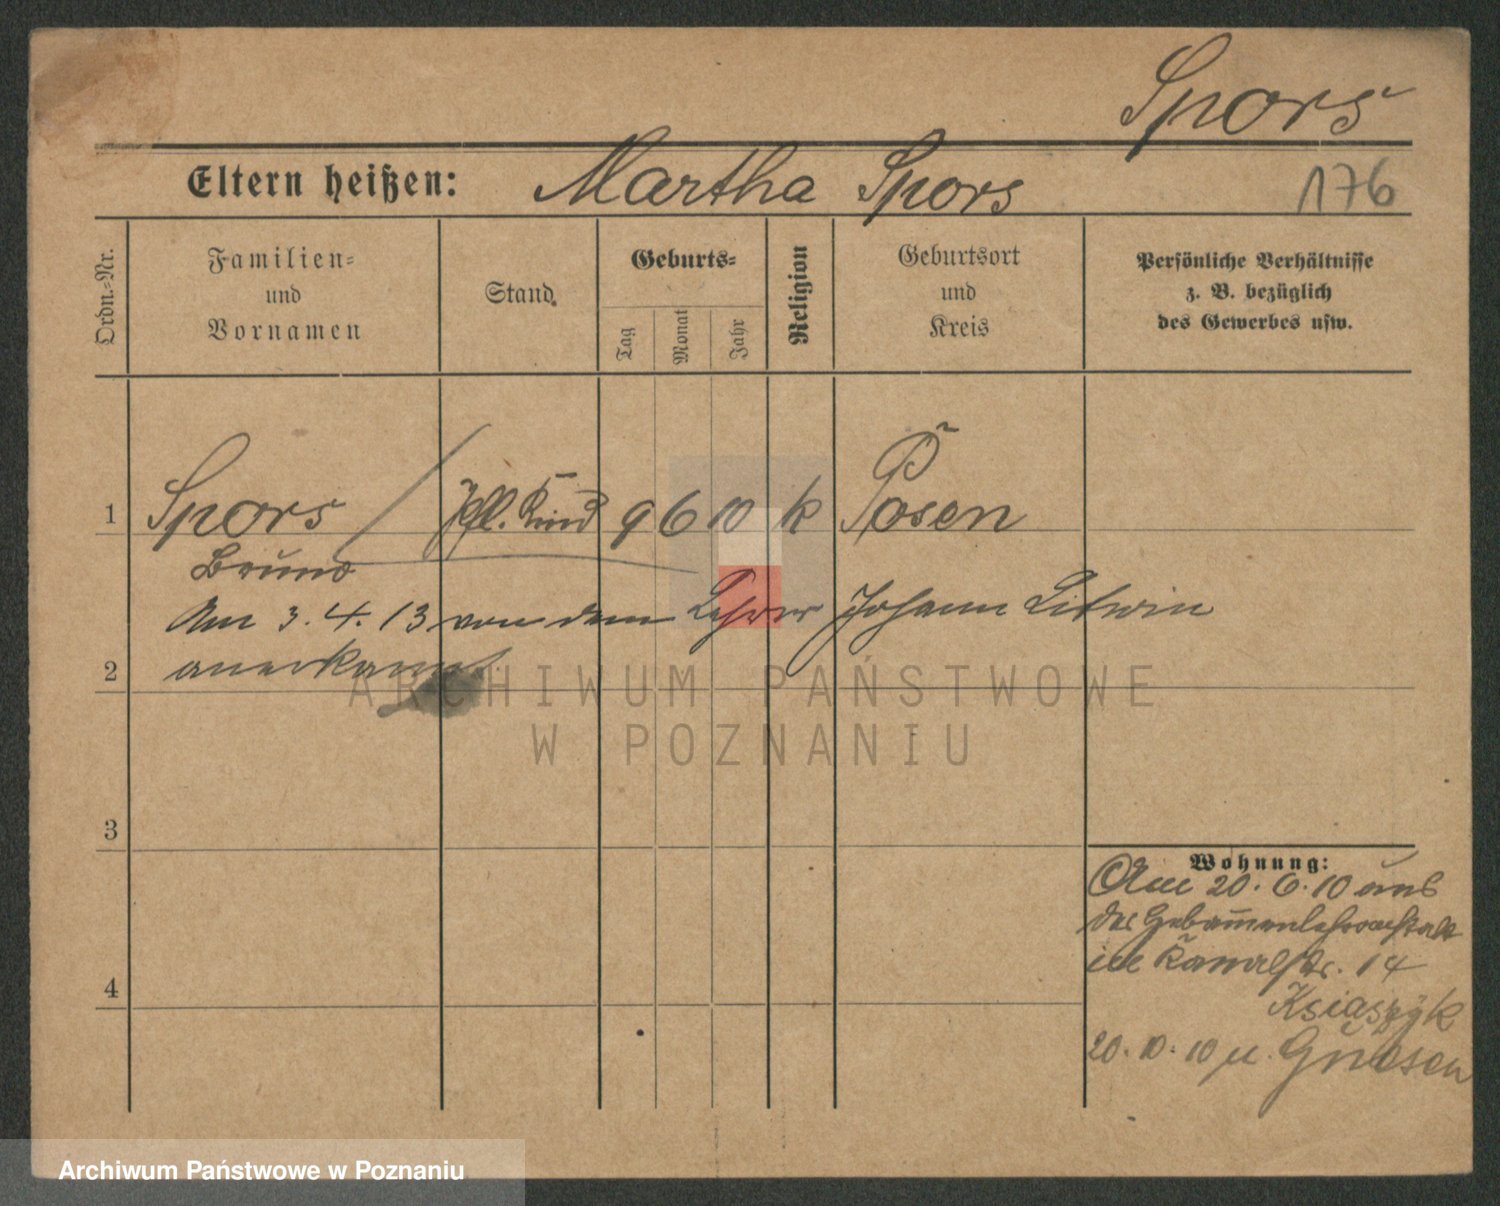 Spors
Eltern heißen: Martha Spors 176
Ordn.-Nr.
Familien- und Vornamen
Stand
Geburts-
Tag
Monat
Jahr
Religion
Geburtsort und Kreis
Persönliche Verhältnisse
z. B. bezüglich
des Gewerbes usw.
1 Spors Pfl. Kind 9 6 10 k Posen
Bruno
Am 3. 4. 13 von dem Lehrer Johann Litwin
2 anerkannt
ARCHIWUM PAŃSTWOWE
W POZNANIU
3
Wohnung:
Am 20. 6. 10 aus
der Hebammenlehranstalt
in Kanalstr. 14
4
Ksiaszyk
20. 10. 10 n. Gnesen
Archiwum Państwowe w Poznaniu